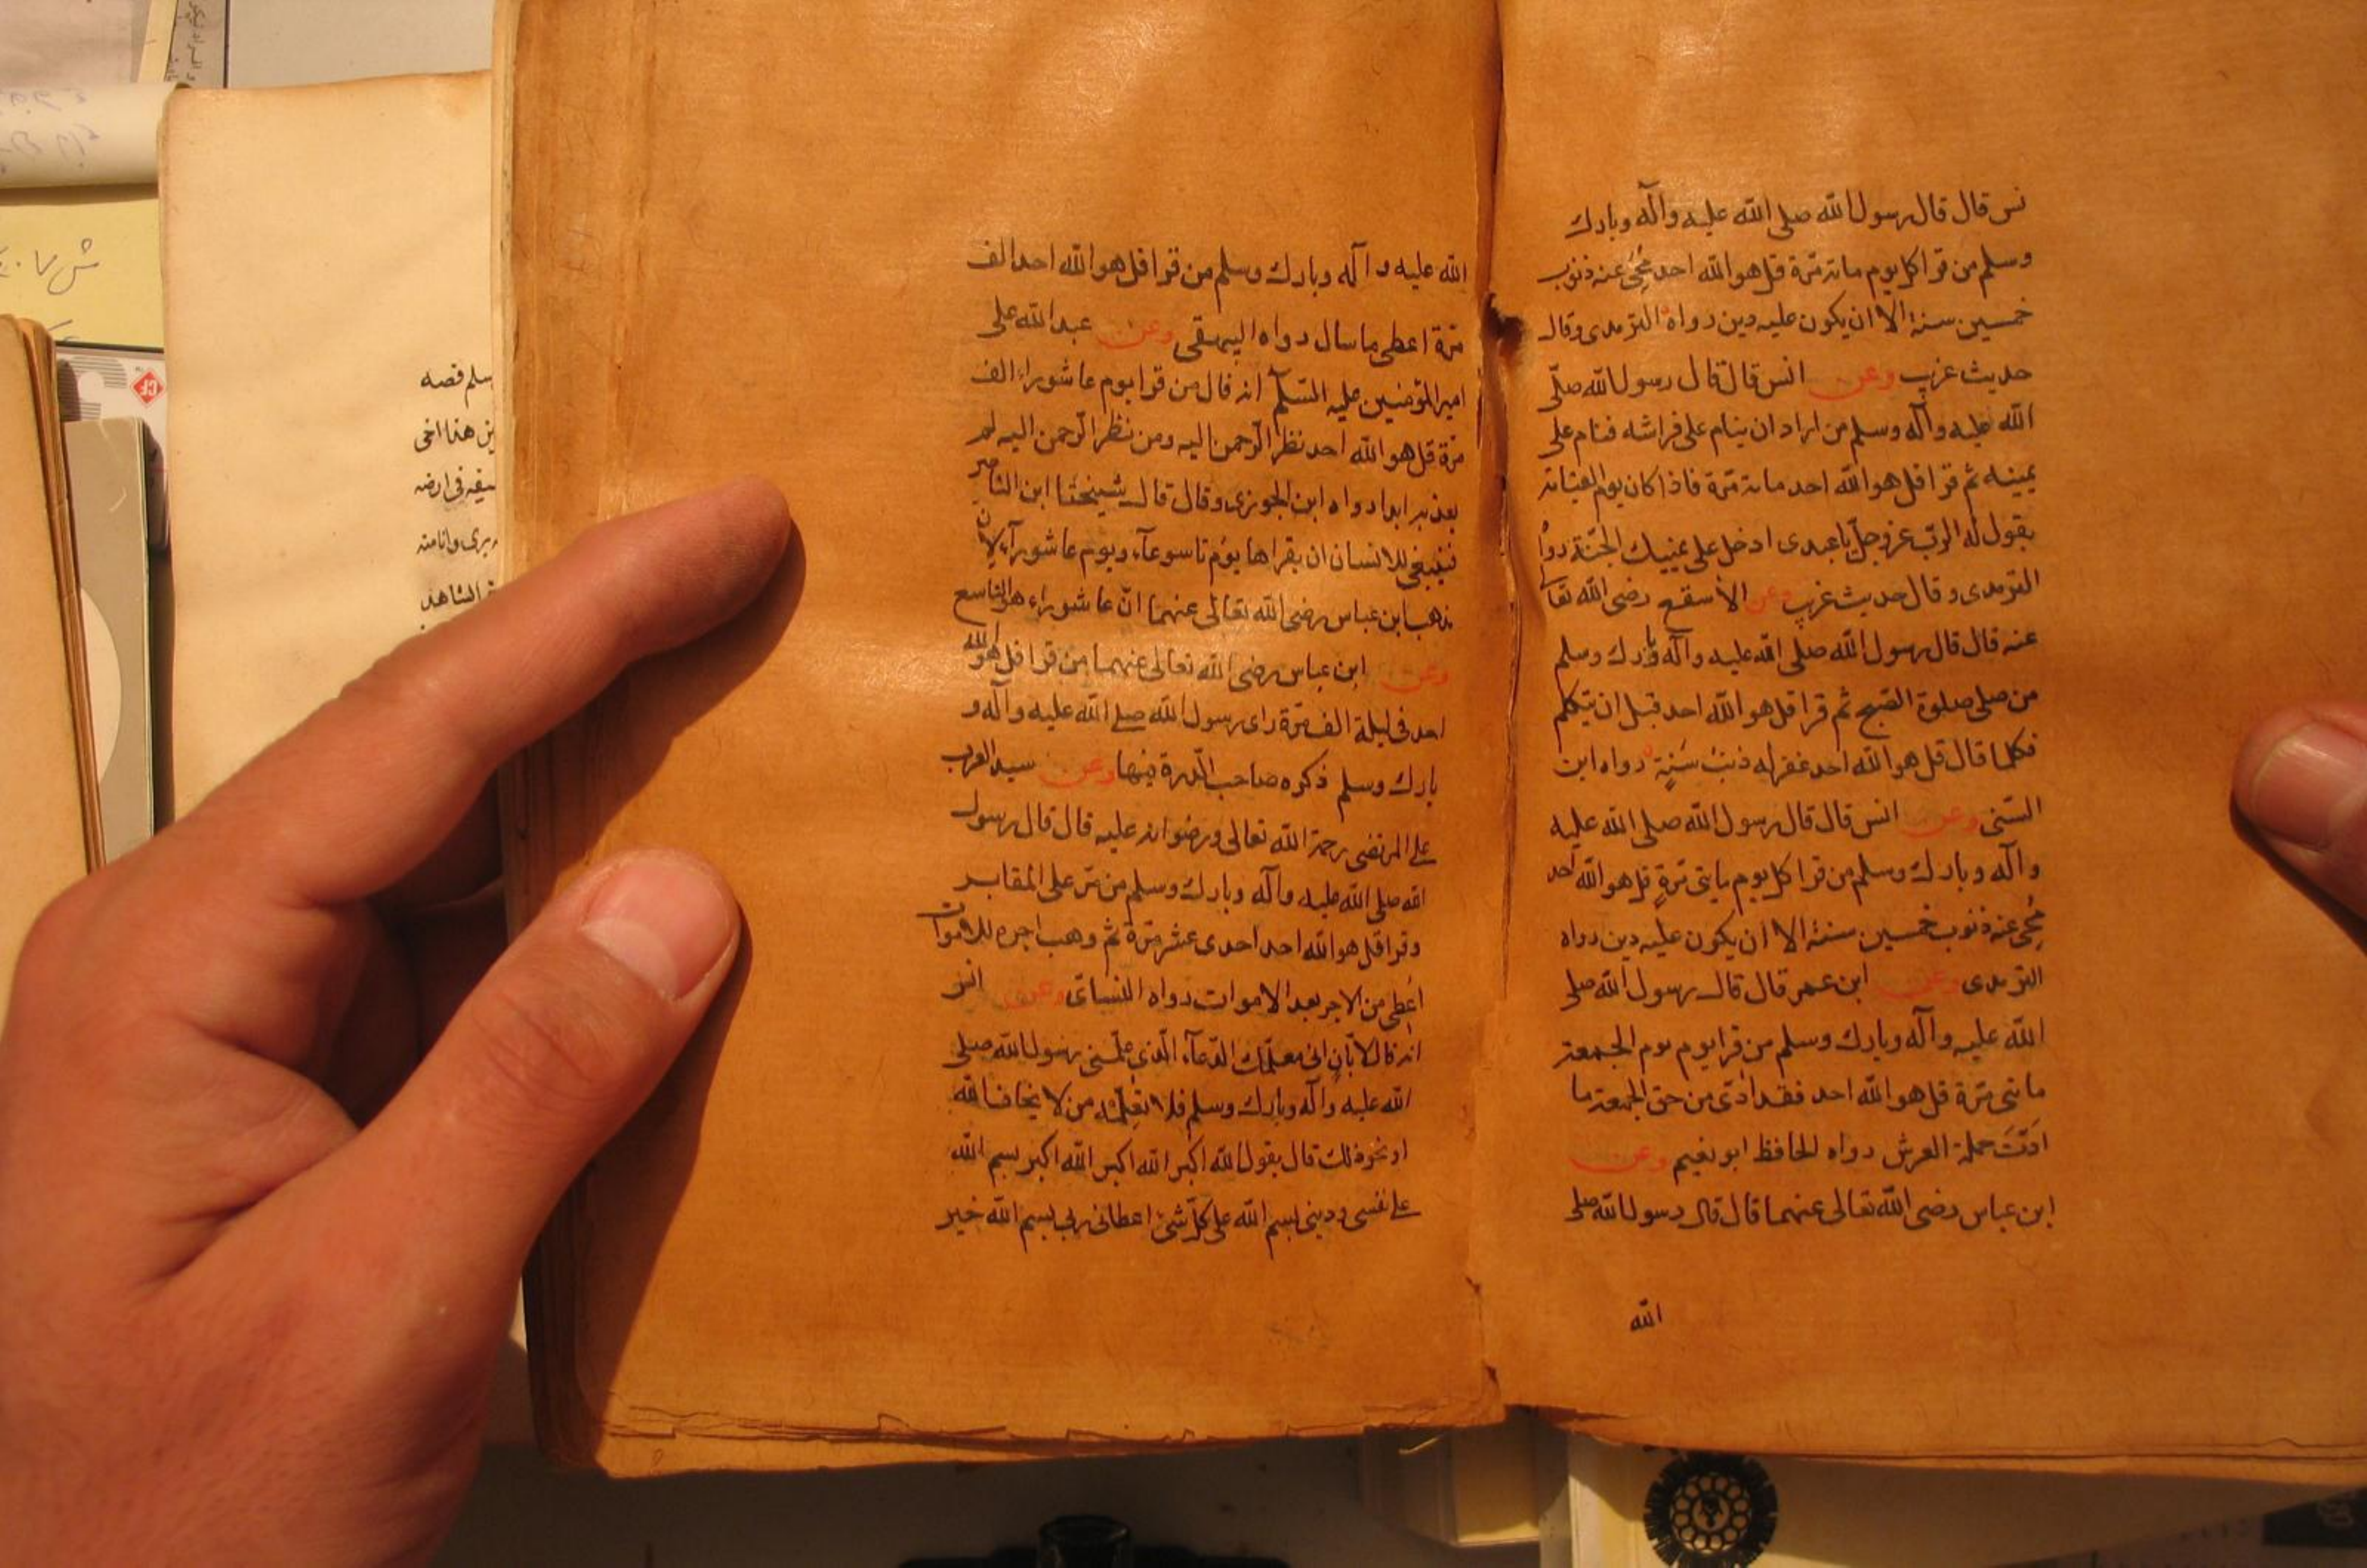 نس قال قال رسول الله صلى الله عليه وآله وبارك
وسلم من قرا كل يوم مائة مرة قل هو الله احد مُحِيَ عنه ذنوب
خمسين سنة الا ان يكون عليه دين رواه الترمدى وقال
حديث غريب وعن انس قال قال رسول الله صلّى
الله عليه وآله وسلم من اراد ان ينام على فراشه فنام على
يمينه ثم قرا قل هو الله احد مائة مرة فاذا كان يوم القيامة
يقول له الربّ عزوجلّ يا عبدى ادخل على يمينك الجنّة رواه
الترمدى وقال حديث غريب وعن الأسقع رضى الله تعالى
عنه قال قال رسول الله صلى الله عليه وآله وبارك وسلم
من صلى صلوة الصبح ثم قرا قل هو الله احد قبل ان يتكلم
فكلما قال قل هو الله احد غفر له ذنبُ سَنَةٍ رواه ابن
السّنى وعن انس قال قال رسول الله صلى الله عليه
وآله وبارك وسلم من قرا كل يوم مايتى مَرّةٍ قل هو الله احد
مُحِى عنه ذنوب خمسين سنة الا ان يكون عليه دين رواه
الترمدى وعن ابن عمر قال قال رسول الله صلى
الله عليه وآله وبارك وسلم من قرا يوم يوم الجمعة
مائتى مرّة قل هو الله احد فقد ادّى من حق الجمعة ما
ادّتَ حملة العرش رواه الحافظ ابو نعيم وعن
ابن عباس رضى الله تعالى عنهما قال قال رسول الله صلى
الله
الله عليه وآله وبارك وسلم من قرا قل هو الله احد الف
مَرّة اعطى ما سال رواه البيهقى وعن عبد الله على
امير المؤمنين عليه السّلم انه قال من قرا يوم عاشوراء الف
مَرّة قل هو الله احد نظر الرحمن اليه ومن نظر الرحمن اليه لم
يعذبه ابدا رواه ابن الجوزى وقال قال شيخنا ابن الناصر
فينبغى للانسان ان يقراها يوم تاسوعآء ويوم عاشورآء لان
ذهب ابن عباس رضى الله تعالى عنهما انّ عاشوراء هو التاسع
وعن ابن عباس رضى الله تعالى عنهما من قرا قل هو الله
احد فى ليلة الف مَرّة راى رسول الله صلى الله عليه وآله و
بارك وسلم ذكره صاحب الدّرة فيها وعن سيد العرب
على المرتضى رحمة الله تعالى ورضوانه عليه قال قال رسول
الله صلى الله عليه وآله وبارك وسلم من مرّ على المقابر
وقرا قل هو الله احد احدى عشر مَرّة ثم وهب اجره للاموات
اُعطى من الاجر بعد الاموات رواه النساى وعن انس
انه قال لابان انى معلمك الدّعآء الّذى علّمنى رسول الله صلى
الله عليه وآله وبارك وسلم فلا تعلّمه من لا يخاف الله
او نحو ذلك قال يقول الله اكبر الله اكبر الله اكبر بسم الله
على نفسى ودينى بسم الله على كلّ شئ اعطانى ربى بسم الله خير
سلم قصه
هذا اخى
فى ارضه
برى وانا منه
الشاهد